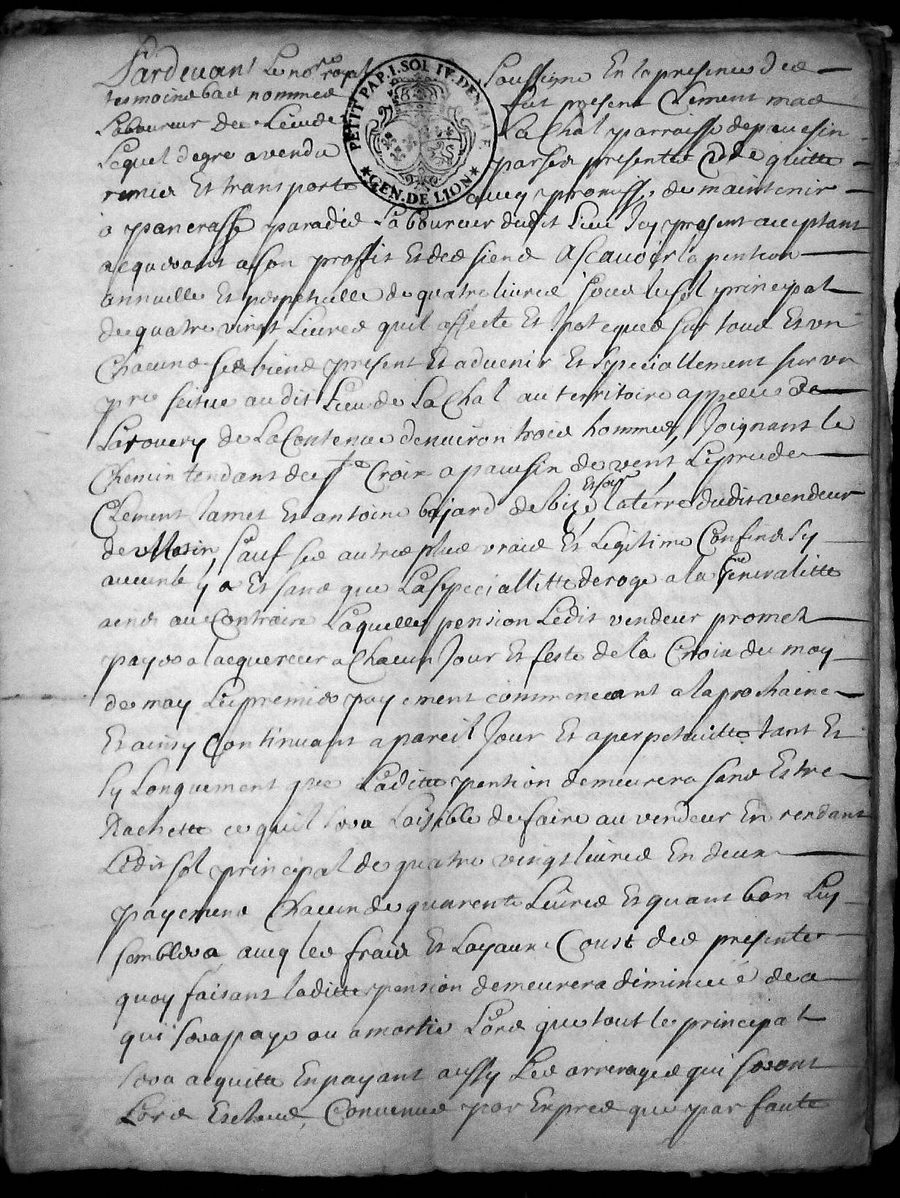 Pardevant Le no.re royal soussigne En la presence des
tesmoins bas nommes fut present Clement mas
Laboureur de Lieu de La Chal parroisse de pavesin
Lequel de gre a vendu par ses presentes cede quitte
remis Et transporte avecq promesse de maintenir
a pancrasse paradis Laboureur dudit Lieu Icy present acceptant
acquerant a son proffit Et des siens Ascavoir la pention
annuelle Et perpetuelle de quatre livres sous le sol principal
de quatre vingt Livres quil affecte Et ipoteques sur tous Et un
Chacuns ses biens present Et advenir Et speciallement sur un
pre scitue audit Lieu de La Chal au territoire appelle de
La rovery de La Contenue denviron trois hommes, Joignant le
Chemin tendant de Ste Croix a pavesin de vent Le pre de
Clement lamet Et antoine bajard de bize Et soir la terre dudit vendeur
de Matin, sauf ses autres plus vrais Et Legitime Confins sy
aucuns y a Et sans que La speciallitte deroge a la generalitte
ains au Contraire Laquelle pension Ledit vendeur promet
payer a lacquereur a Chacun Jour Et feste de la Croix du may
de may Le premier payement commencant a la prochaine
Et ainsy Continuant a pareil Jour Et a perpetuitte tant Et
sy Longuement que Laditte pention demeurera sans Estre
Rachette ce quil sera Loisible de faire au vendeur En rendant
Ledit sol principal de quatre vingt livres En deux
payemens Chacun de quarente Livres Et quant bon Luy
semblera avecq les frais Et Loyaux Coust des presentes
quoy faisant laditte pension demeurera diminuee de ce
qui sera paye ou amortie Lors que tout le principal
sera acquitte En payant aussy Les arrerages qui seront
Lors Escheus, Convenus par Expres que par faute
PETIT PAP. I. SOL IV. DEN. LA F.
GEN. DE LION